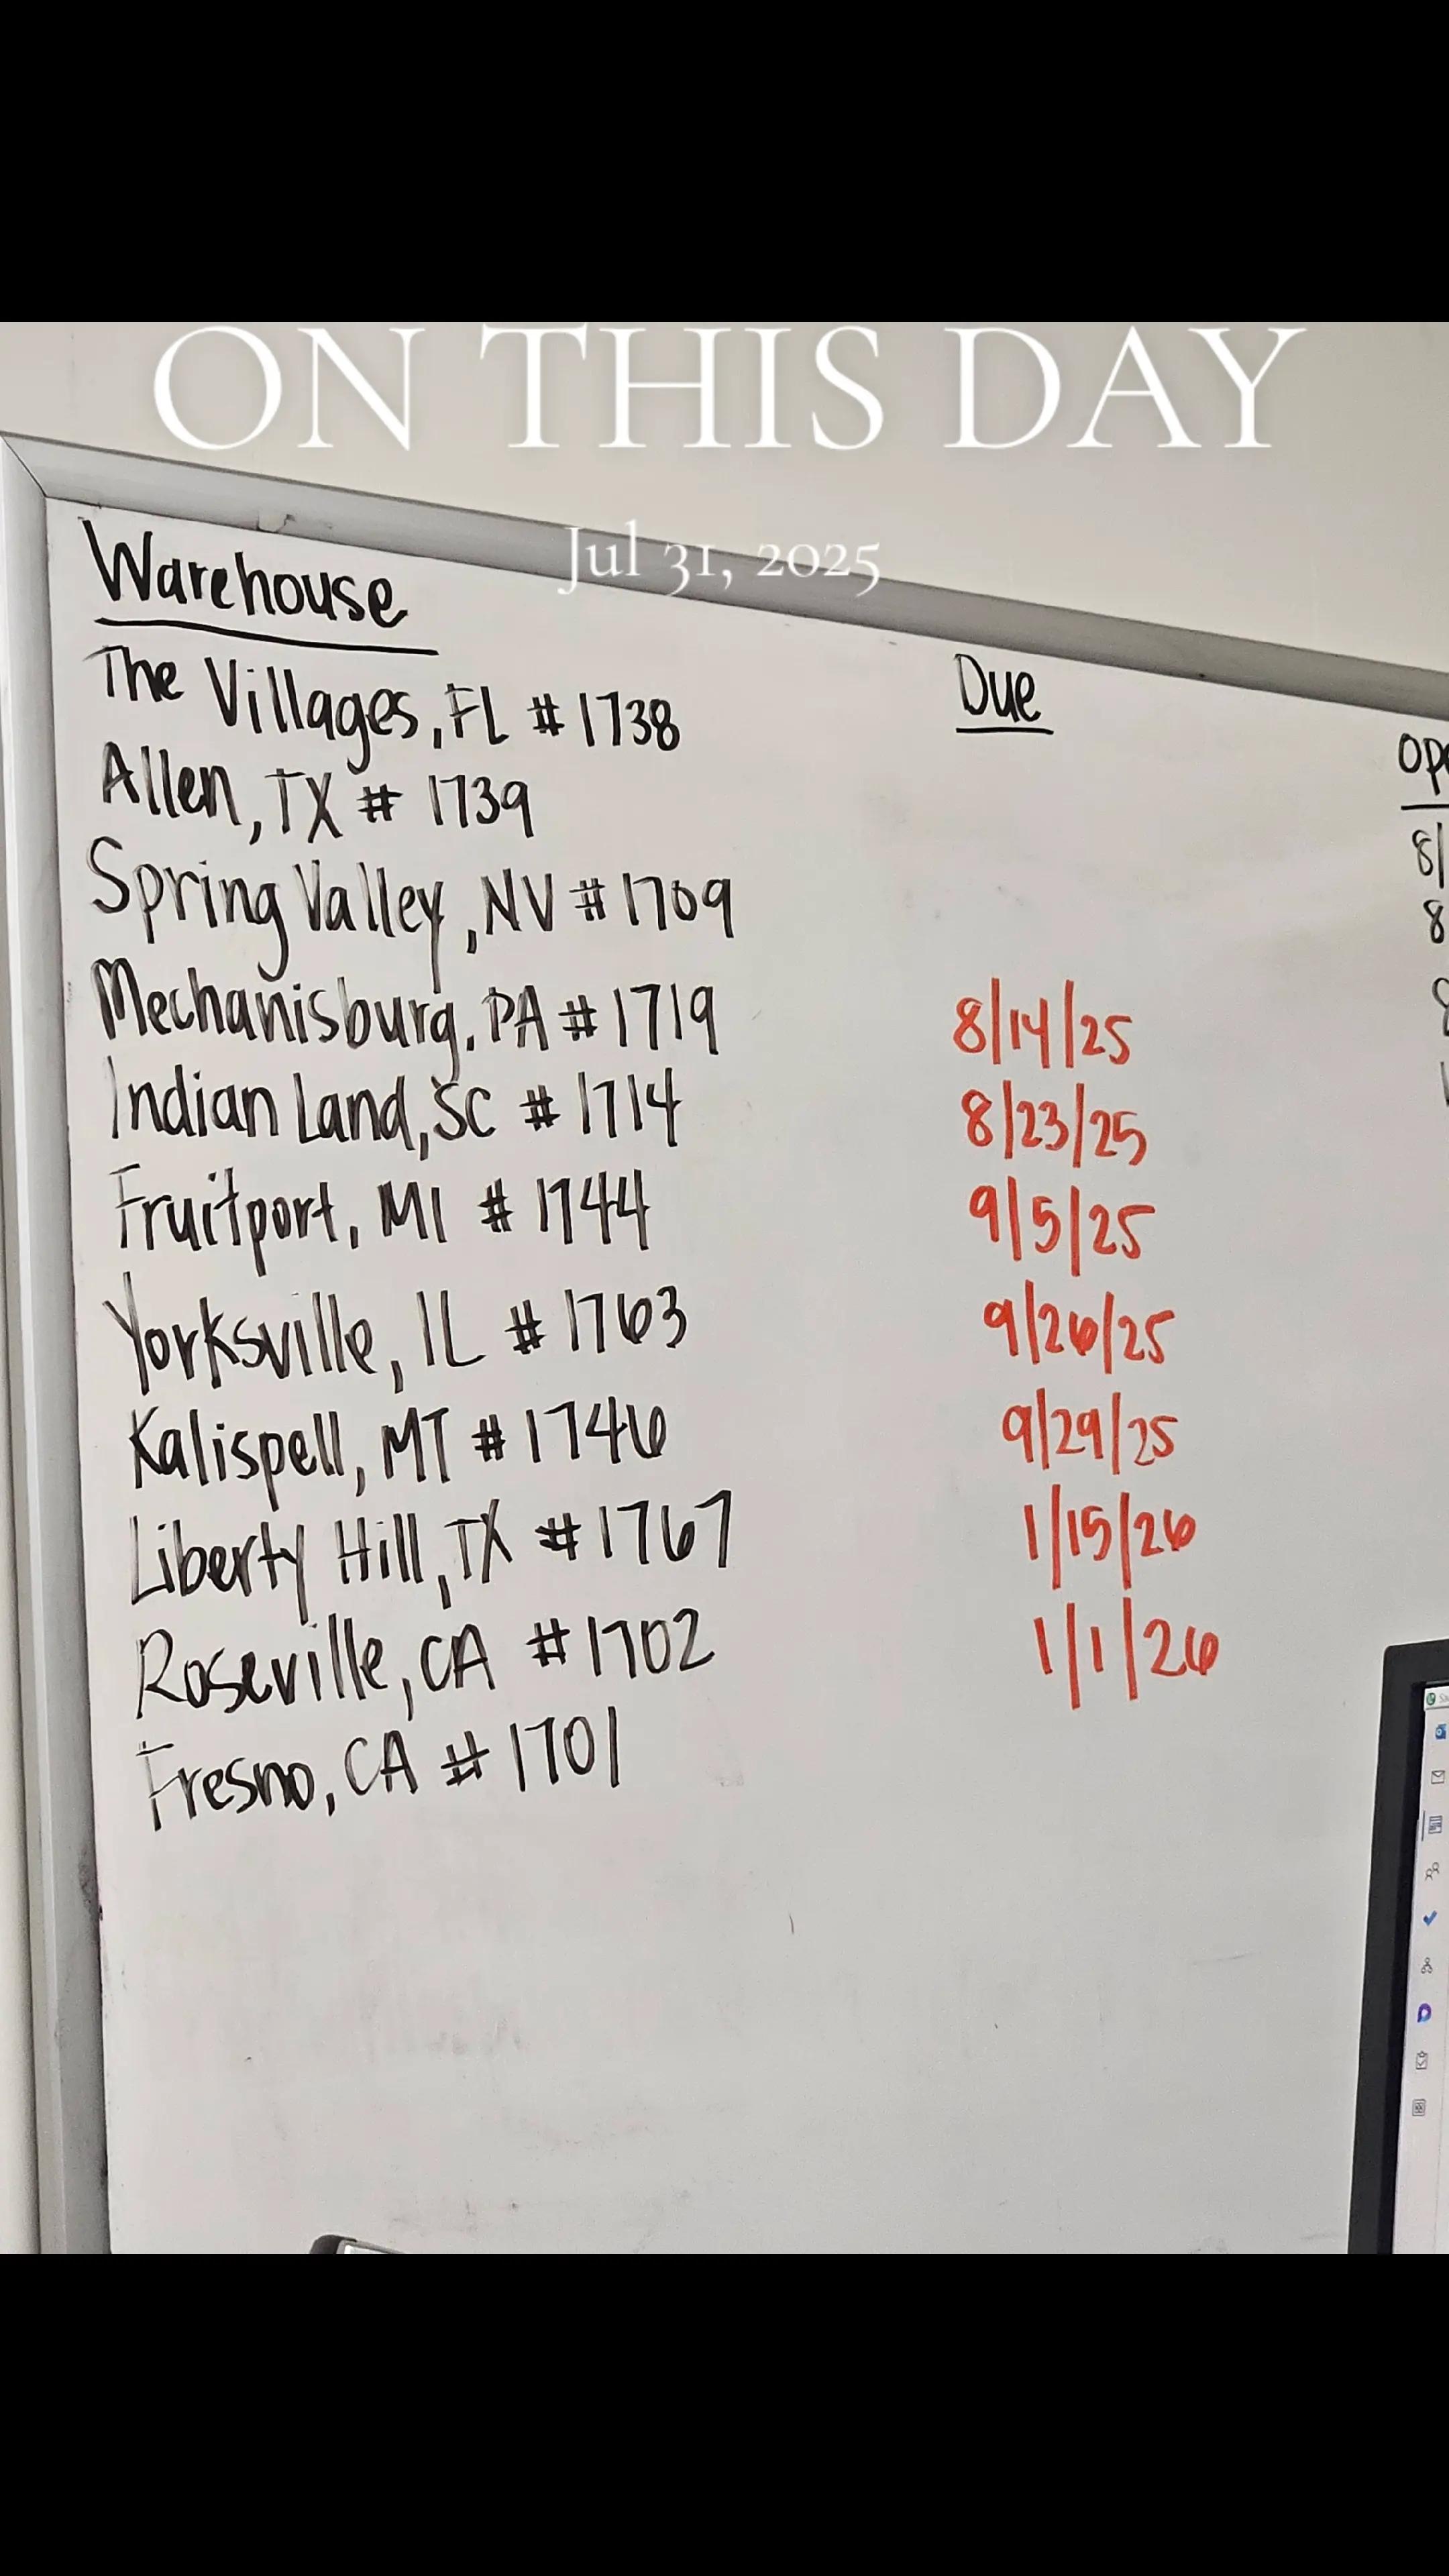 ON THIS DAY
Jul 31, 2025
Warehouse
Due
The Villages, FL # 1738
Allen, TX # 1739
Spring Valley, NV # 1709
Mechanisburg, PA # 1719 8/14/25
Indian Land, SC # 1714 8/23/25
Fruitport, MI # 1744 9/5/25
Yorksville, IL # 1763 9/26/25
Kalispell, MT # 1746 9/29/25
Liberty Hill, TX # 1767 1/15/26
Roseville, CA # 1702 1/1/26
Fresno, CA # 1701